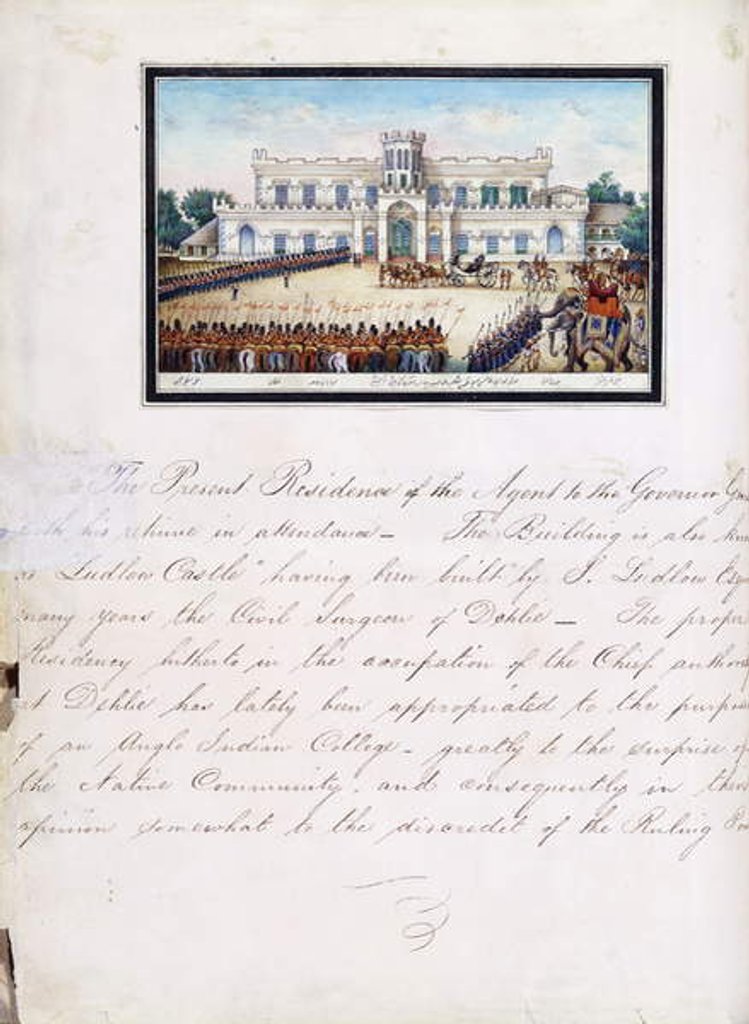 The Present Residence of the Agent to the Governor G
with his retinue in attendance — The Building is also kn
as "Ludlow Castle" having been built by J. Ludlow Esq
many years the Civil Surgeon of Dehlie — The proper
Residency hitherto in the occupation of the Chief author
at Dehlie has lately been appropriated to the purpos
of an Anglo Indian College – greatly to the surprise of
the Native Community, and consequently in their
opinion somewhat to the discredit of the Ruling Po